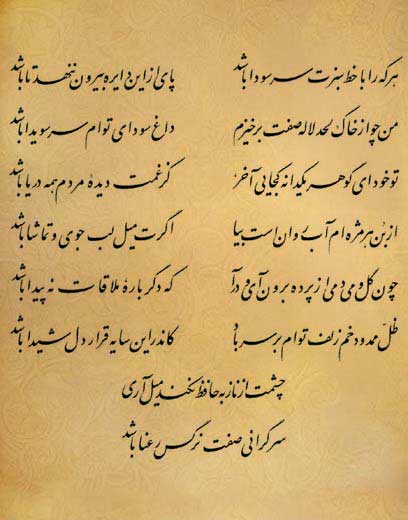 هرکه را با خط سبزت سر سودا باشد    پای از این دایره بیرون ننهد تا باشد
من چو از خاک لحد لاله صفت برخیزم    داغ سودای توام سر سویدا باشد
تو خود ای گوهر یکدانه کجایی آخر    کز غمت دیدهٔ مردم همه دریا باشد
از بن هر مژه‌ام آب روان است بیا    اگرت میل لب جوی و تماشا باشد
چون گل و می دمی از پرده برون آی و درآ    که دگر باره ملاقات نه پیدا باشد
ظلّ ممدود خم زلف توام بر سر باد    کاندر این سایه قرار دل شیدا باشد
چشمت از ناز به حافظ نکند میل آری
سرگرانی صفت نرگس رعنا باشد